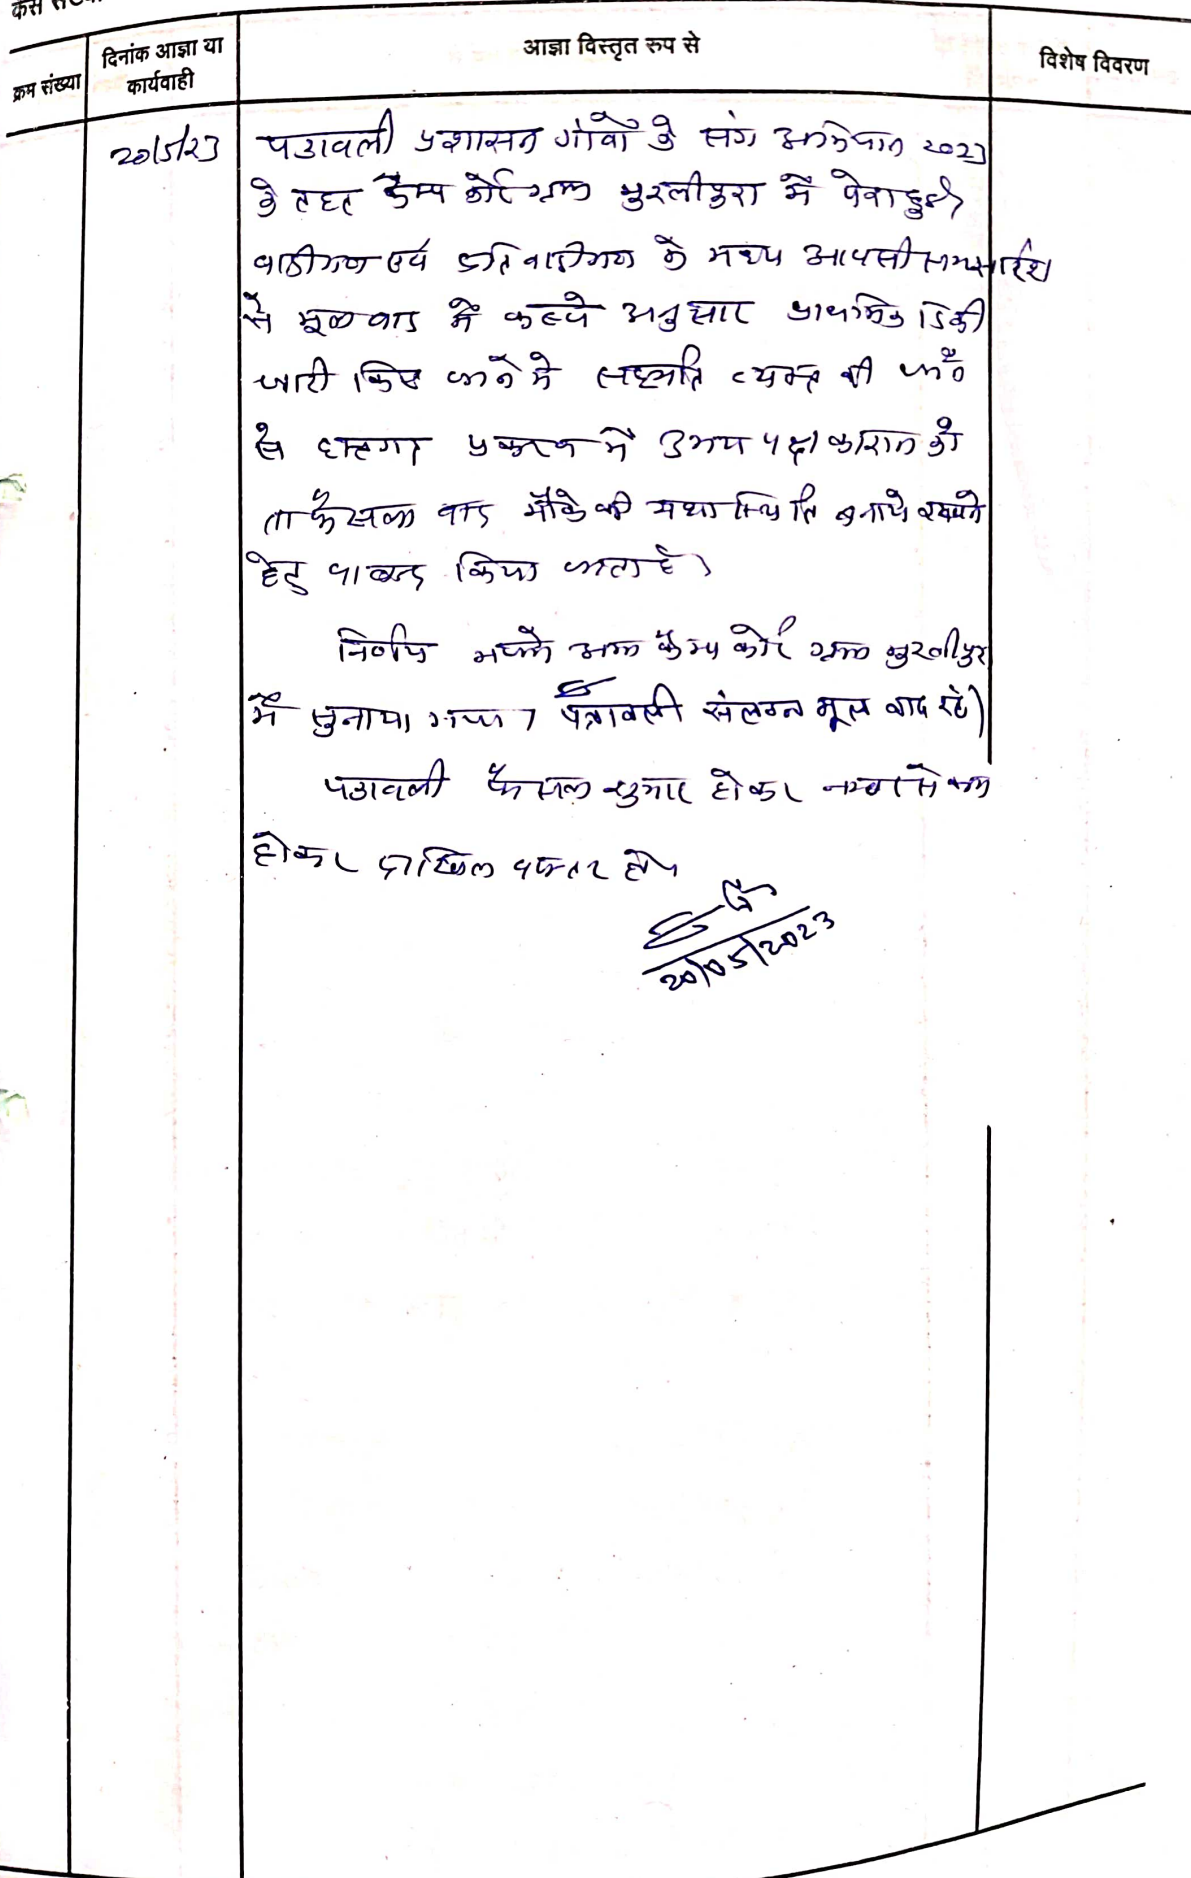 केस
क्रम संख्या
दिनांक आज्ञा या
कार्यवाही
आज्ञा विस्तृत रुप से
विशेष विवरण
20/5/23
पत्रावली प्रशासन गांवों के संग अभियान 2023
के तहत कैम्प कोर्ट ग्राम मुरलीपुरा में पेश हुई।
वादीगण एवं प्रतिवादीगण के मध्य आपसी समझाईश
से मूल वाद में कब्जे अनुसार प्राथमिक डिक्री
जारी किए जाने में सहमति व्यक्त की
से हस्तगत प्रकरण में उभय पक्षकारान को
ता फैसला वाद मौके की यथास्थिति बनाये रखने
हेतु पाबन्द किया जाता है।
निर्णय आज कैम्प कोर्ट ग्राम मुरलीपुरा
में सुनाया गया। पत्रावली संलग्न मूल वाद रहे।
पत्रावली फैसल शुमार होकर नम्बर से कम
होकर दाखिल दफ्तर हो।
20/05/2023